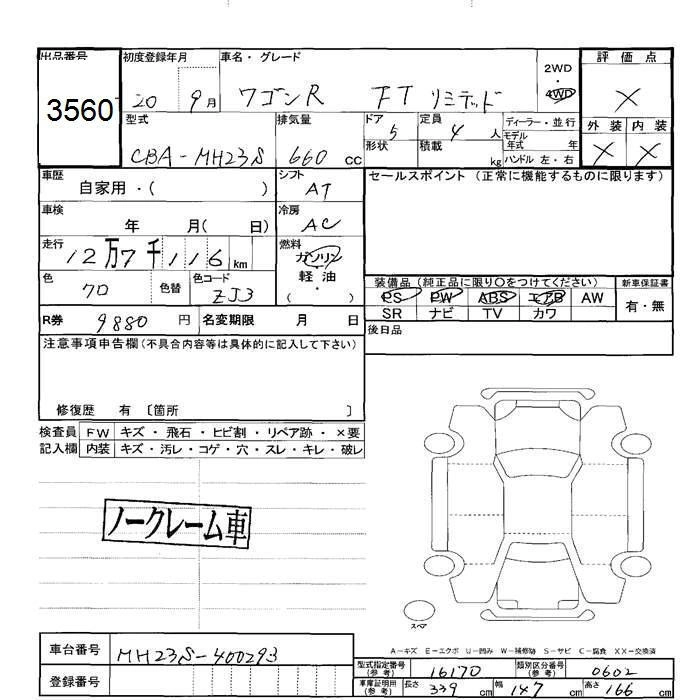 出品番号 初度登録年月 車名・グレード 2WD・4WD 評価点
3560 20 9月 ワゴンR FT リミテッド ×
型式 排気量 ドア 定員 ディーラー・並行 外装 内装
CBA-MH23S 660cc 5 4人 モデル年式 年 × ×
形状 積載 kg ハンドル 左・右
車歴 シフト セールスポイント (正常に機能するものに限ります)
自家用・( ) AT
車検 冷房
年 月( 日) AC
走行 燃料
12万7千116km ガソリン・軽油・( )
色 色替 色コード 装備品 (純正品に限り○をつけてください) 新車保証書
クロ ZJ3 PS PW ABS エアB AW 有・無
SR ナビ TV カワ
R券 9880円 名変期限 月 日 後日品
注意事項申告欄(不具合内容等は具体的に記入して下さい)
修復歴 有 〔箇所 〕
検査員 FW キズ・飛石・ヒビ割・リペア跡・×要
記入欄 内装 キズ・汚レ・コゲ・穴・スレ・キレ・破レ
ノークレーム車
スペア
A-キズ E-エクボ U-凹み W-補修跡 S-サビ C-腐食 XX-交換済
車台番号 MH23S-400293
型式指定番号(参考) 16170 類別区分番号(参考) 0602
登録番号
車庫証明用(参考) 長さ 339cm 幅 147cm 高さ 166cm